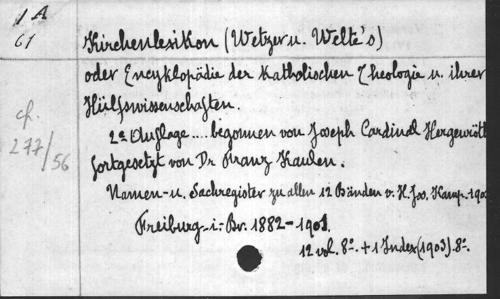 1 A
61
Kirchenlexikon (Wetzer u. Welte's)
oder Encyklopädie der Katholischen Theologie u. ihrer
Hülfswissenschaften.
cf.
277/56
2e Auflage.... begonnen von Joseph Cardinal Hergenröth
fortgesetzt von Dr Franz Kaulen.
Namen- u. Sachregister zu allen 12 Bänden v. H. Jos. Kamp. 190
Freiburg-i-Br. 1882-1901.
12 vol. 8o. + 1 Index (1903). 8o.